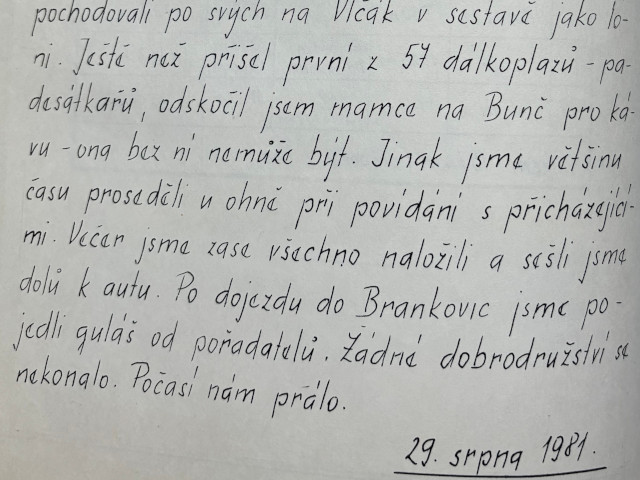 pochodovali po svých na Vlčák v sestavě jako lo-
ni. Ještě než přišel první z 57 dálkoplazů - pa-
desátkařů, odskočil jsem mamce na Bunč pro ká-
vu - ona bez ní nemůže být. Jinak jsme většinu
času proseděli u ohně při povídání s přicházející-
mi. Večer jsme zase všechno naložili a sešli jsme
dolů k autu. Po dojezdu do Brankovic jsme po-
jedli guláš od pořadatelů. Žádné dobrodružství se
nekonalo. Počasí nám přálo.
29. srpna 1981.